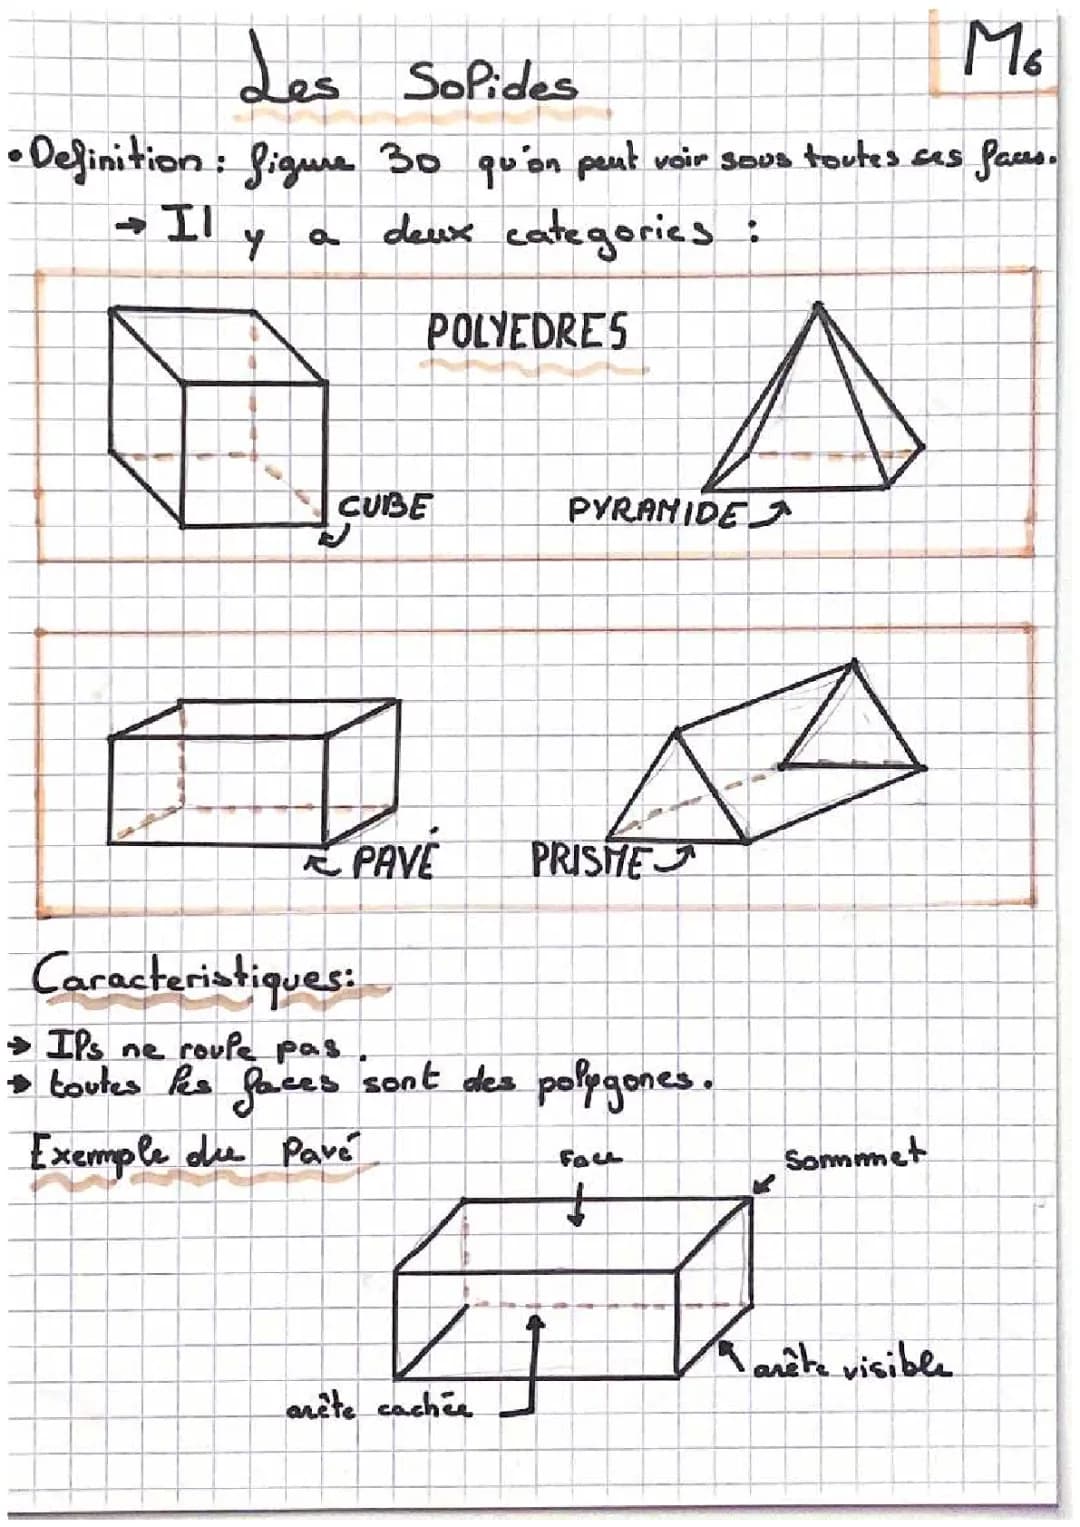 Les Solides
M6
• Definition : figure 3D qu'on peut voir sous toutes ses faces.
→ Il y a deux categories :
POLYEDRES
CUBE
PYRAMIDE
PAVÉ
PRISME
Caracteristiques:
→ Ils ne roule pas.
→ toutes les faces sont des polygones.
Exemple du Pavé
Face
Sommmet
arête visible
arête cachée